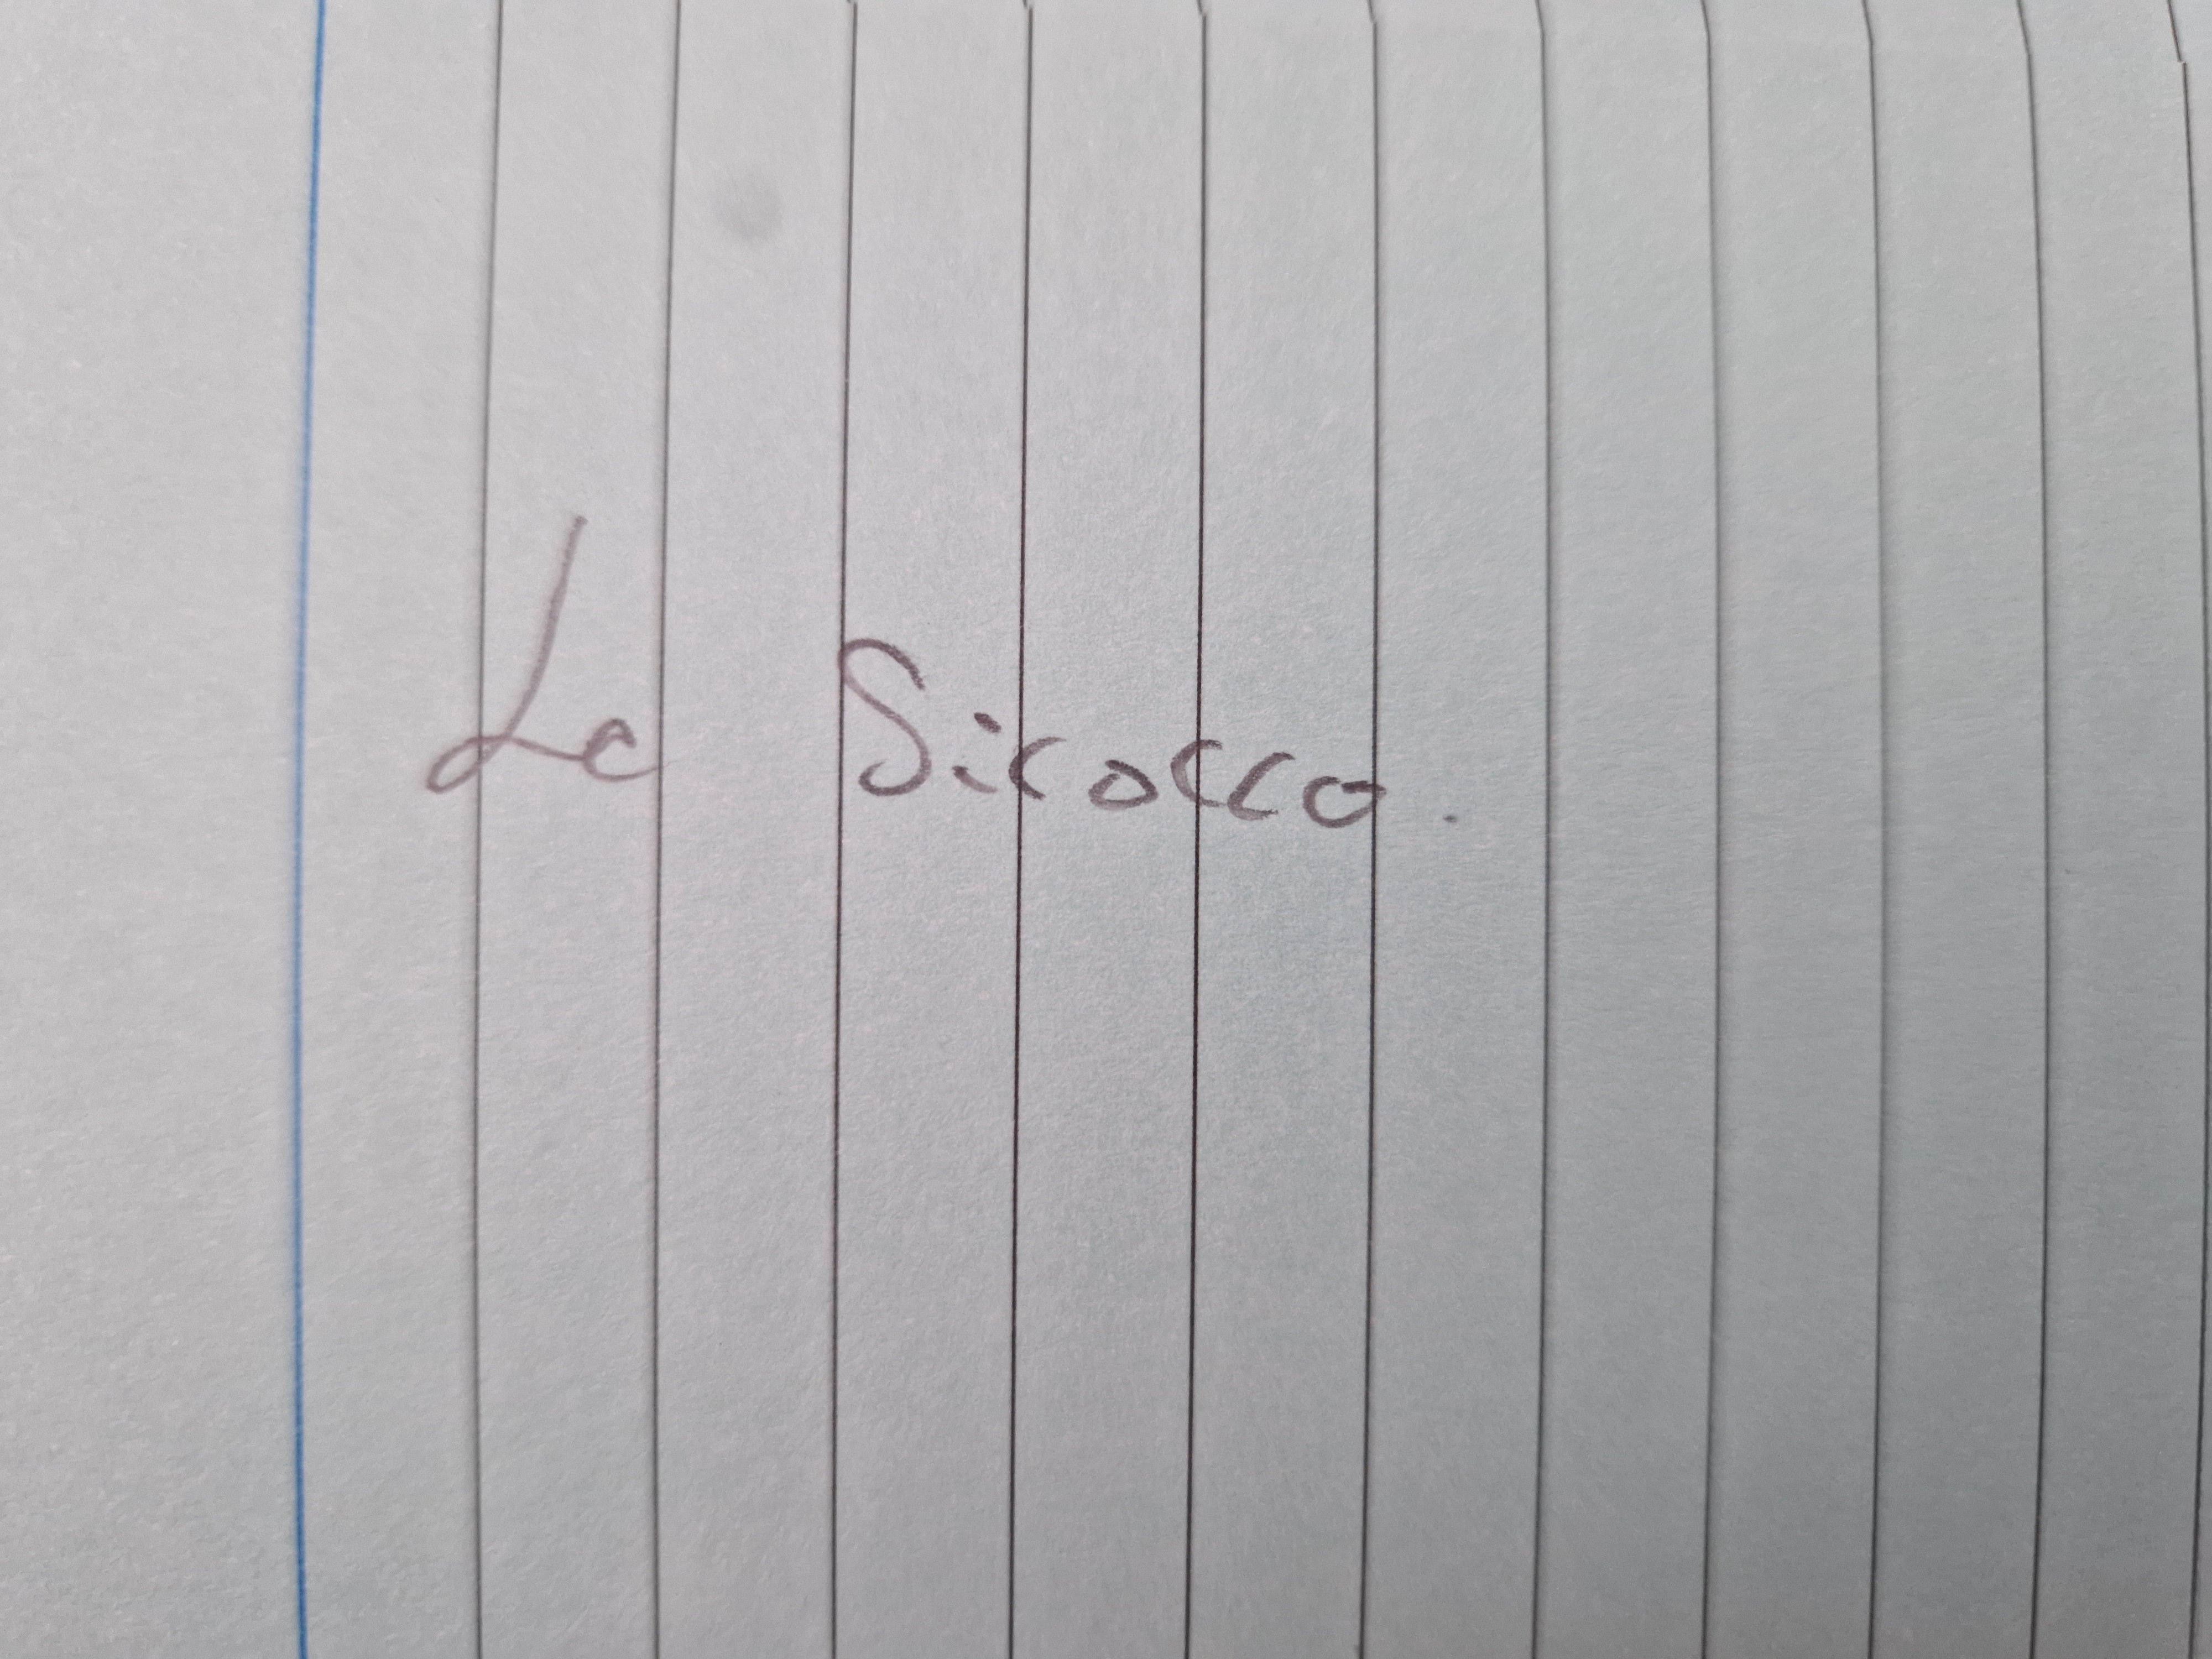 Le Sicocco.